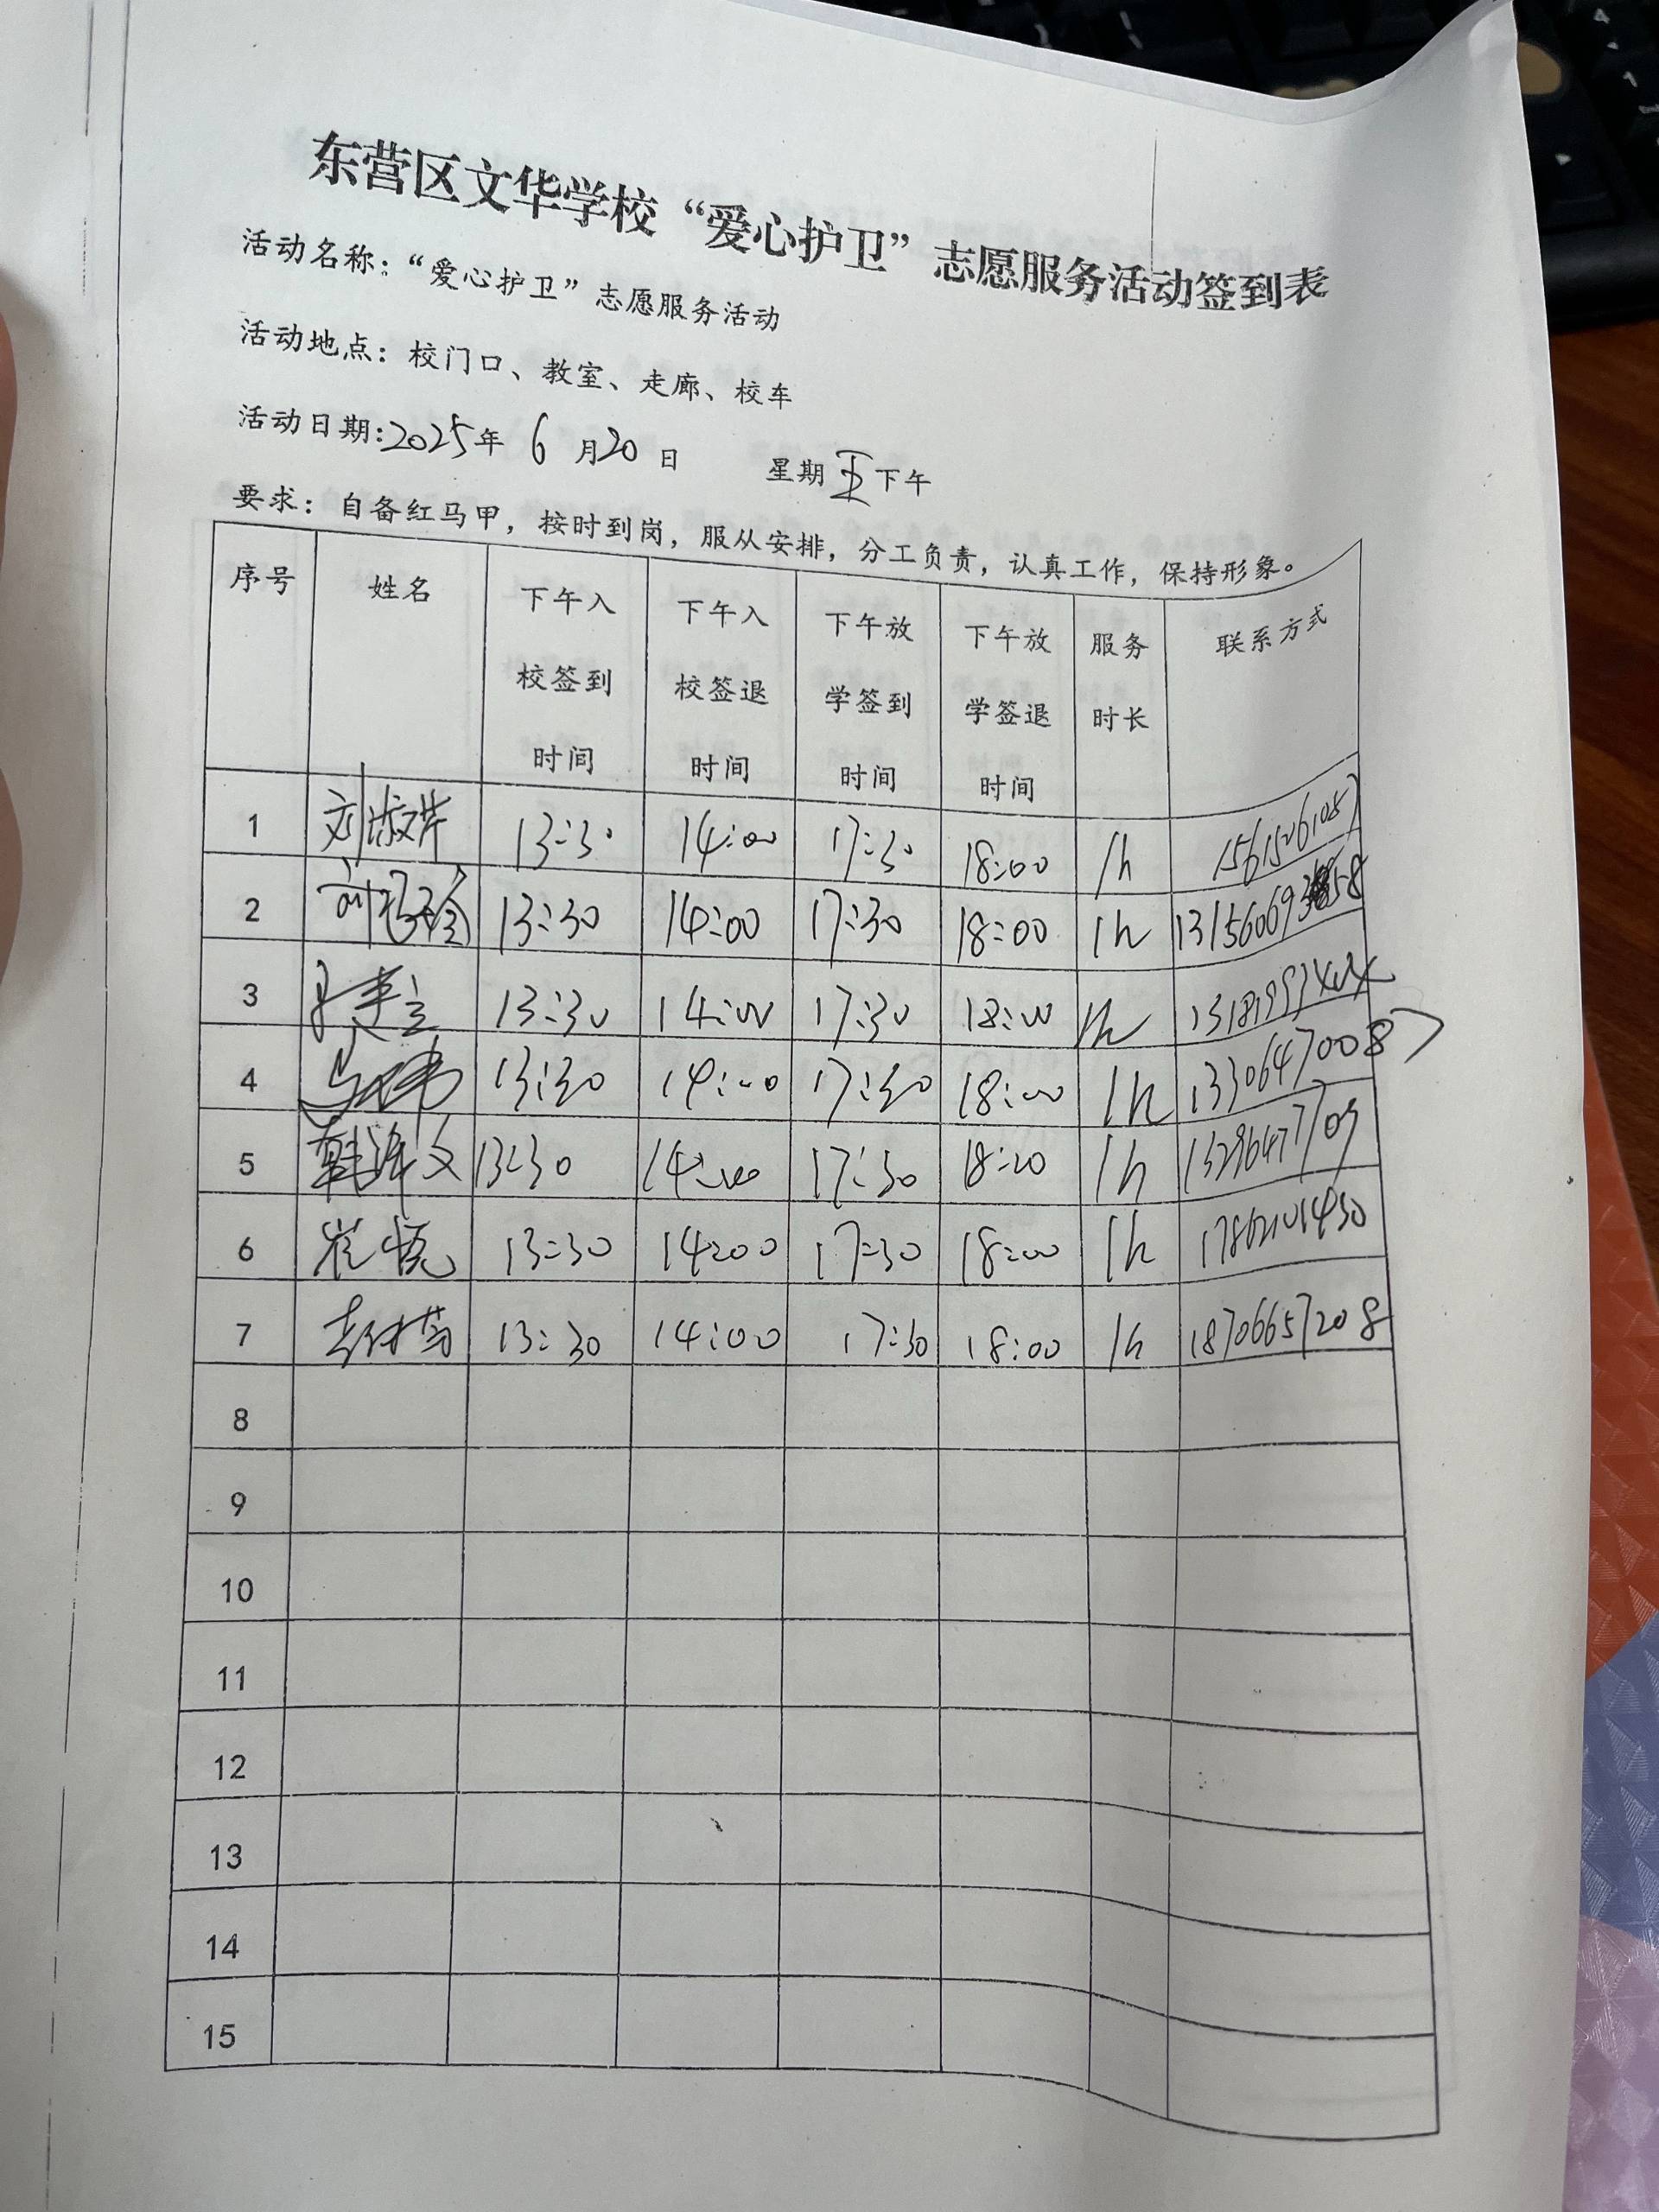 东营区文华学校“爱心护卫”志愿服务活动签到表
活动名称：“爱心护卫”志愿服务活动
活动地点：校门口、教室、走廊、校车
活动日期:2025年 6 月20日 星期五下午
要求：自备红马甲，按时到岗，服从安排，分工负责，认真工作，保持形象。
序号 姓名 下午入校签到时间 下午入校签退时间 下午放学签到时间 下午放学签退时间 服务时长 联系方式
1 刘淑芹 13:30 14:00 17:30 18:00 1h 15615261087
2 13:30 14:00 17:30 18:00 1h
3 13:30 14:00 17:30 18:00 1h
4 13:30 14:00 17:30 18:00 1h 13306470087
5 13:30 14:00 17:30 18:20 1h
6 崔悦 13:30 14:00 17:30 18:00 1h
7 13:30 14:00 17:30 18:00 1h 18706657208
8
9
10
11
12
13
14
15